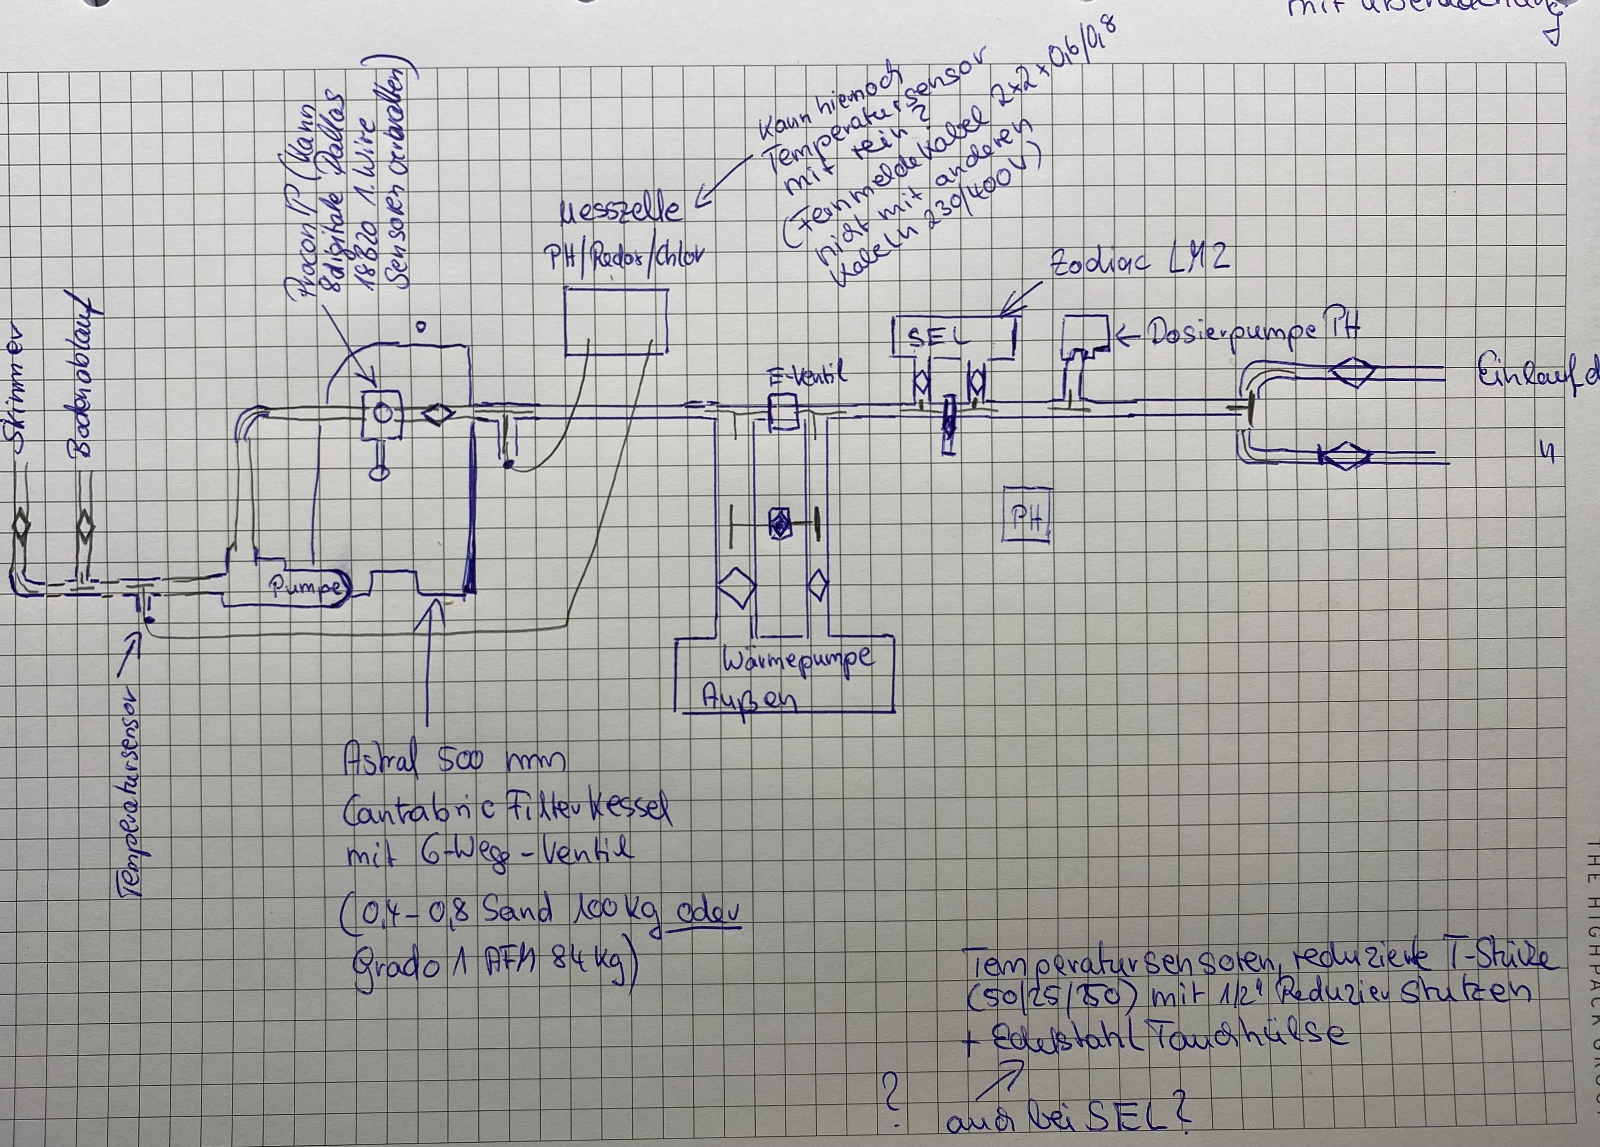 mit Überdachung
Procon IP (Kann
8 digitale Dallas
18B20 1.Wire
Sensoren verwalten)
Kann hier noch
Temperatursensor
mit rein?
(Fernmeldekabel 2x2x0,6/0,8
nicht mit anderen
Kabeln 230/400V)
Messzelle
PH/Redox/Chlor
Zodiac LM2
SEL
Dosierpumpe PH
Skimmer
Bodenablauf
E-Ventil
Einlaufd
"
PH
Pumpe
Wärmepumpe
Außen
Temperatursensor
Astral 500 mm
Cantabric Filterkessel
mit 6-Wege-Ventil
(0,4-0,8 Sand 100kg oder
Grado 1 AFM 84kg)
Temperatursensoren, reduzierte T-Stücke
(50/25/50) mit 1/2" Reduzierstutzen
+ Edelstahl Tauchhülse
?
auch bei SEL?
THE HIGHPACK GROUP